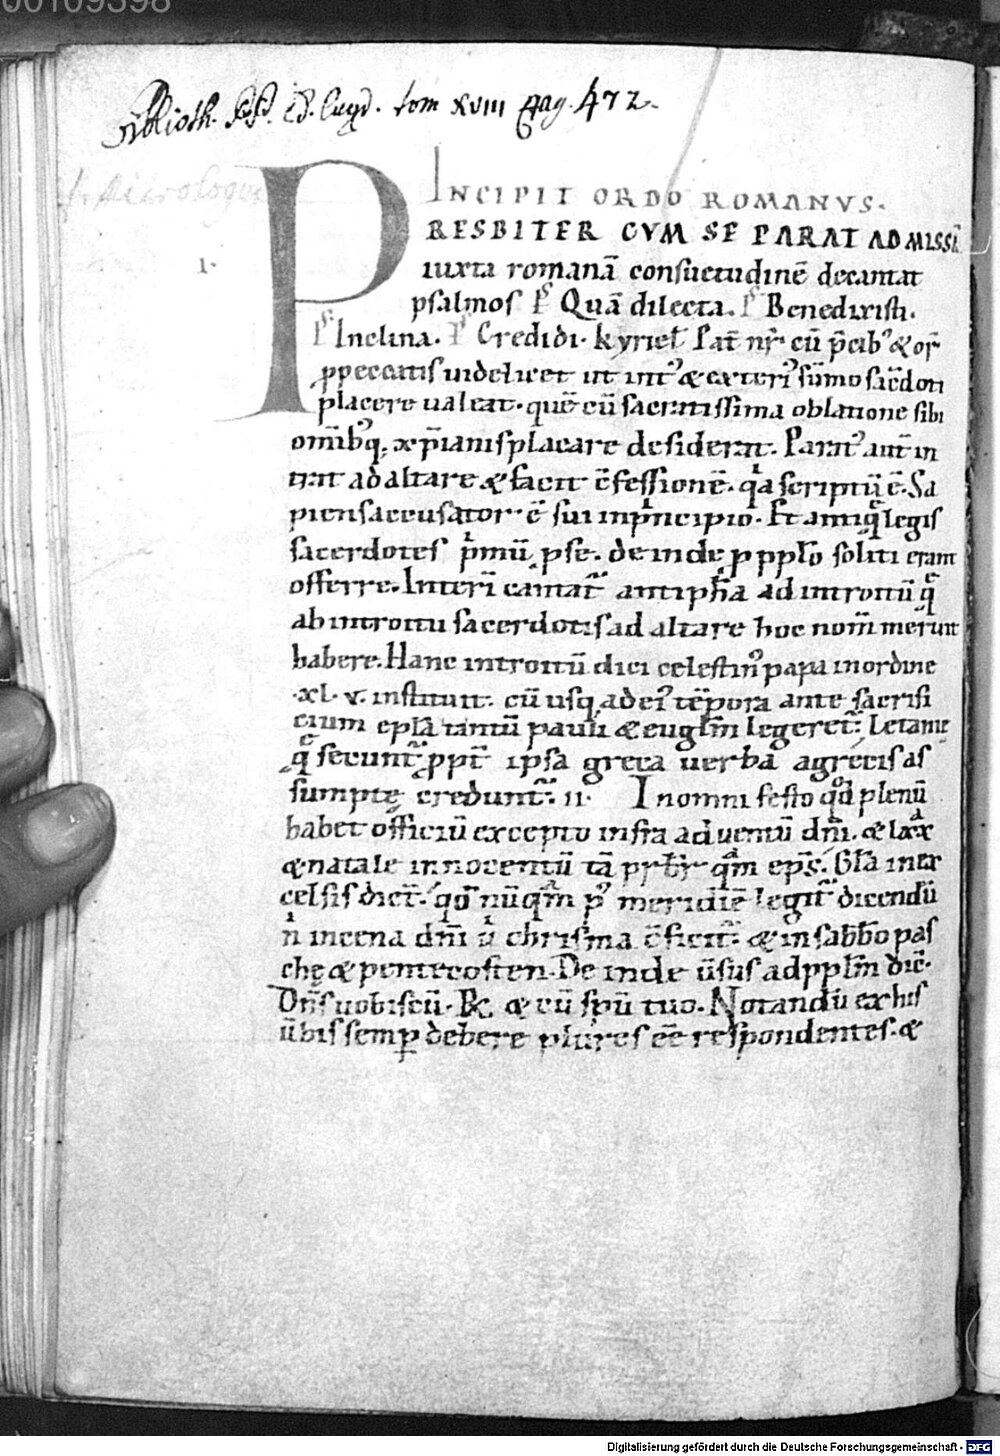 00109398
Biblioth. PP. Lugd. tom XVIII pag. 472.
Micrologus
INCIPIT ORDO ROMANVS.
PRESBITER CVM SE PARAT AD MISSā
1.
iuxta romanā consuetudinē decantat
psalmos Ps Quā dilecta. Ps Benedixisti.
Ps Inclina. Ps Credidi. kyriel̄ Pat̄ nr̄ cū p̄cib; & or̄
ꝓ peccatis uidelicet ut int᾿ & exteri᾿ sūmo sacdoti
placere ualeat. quē cū sacratissima oblatione sibi
omīb;q; xp̄ianis placare desiderat. Parat᾿ aut̄ in
trat ad altare & facit c̄fessionē. qa scriptū ē. Sa
piens accusator ē sui in principio. Et antiqę legis
sacerdotes p̄mū p se. deinde p pplo soliti erant
offerre. Interī cantat᾿ antiph̄a ad introitū qę
ab introitu sacerdotis ad altare hoc nom̄ meruit
habere. Hanc introitū dici celestin᾿ papa in ordine
.xl.v. instituit. cū usq ad ei᾿ tēpora ante sacrifi
cium ep̄la tantū pauli & euglm̄ legeret᾿. Letanię
qę secunt᾿ ꝓpt̄ ipsa greca uerba a grecis as
sumptę credunt᾿. ii. In omni festo qd plenū
habet officiū excepto infra aduentū dn̄i. & lxx
& natale innocentū tā pr̄sbr̄ qm̄ ep̄s. Gl̄a in ex
celsis dic̄t. qd̄ nūqm̄ p᾿ meridiē legit᾿ dicendū
n̄ in cena dn̄i ū chrisma c̄ficit᾿. & in sabb̄o pas
chę & pentecosten. Deinde ūsus ad pplm̄ dic̄.
Dn̄s uobiscū. R̄ & cū spū tuo. Notandū ex his
ūbis semp debere plures eē respondentes. &
Digitalisierung gefördert durch die Deutsche Forschungsgemeinschaft - DFG